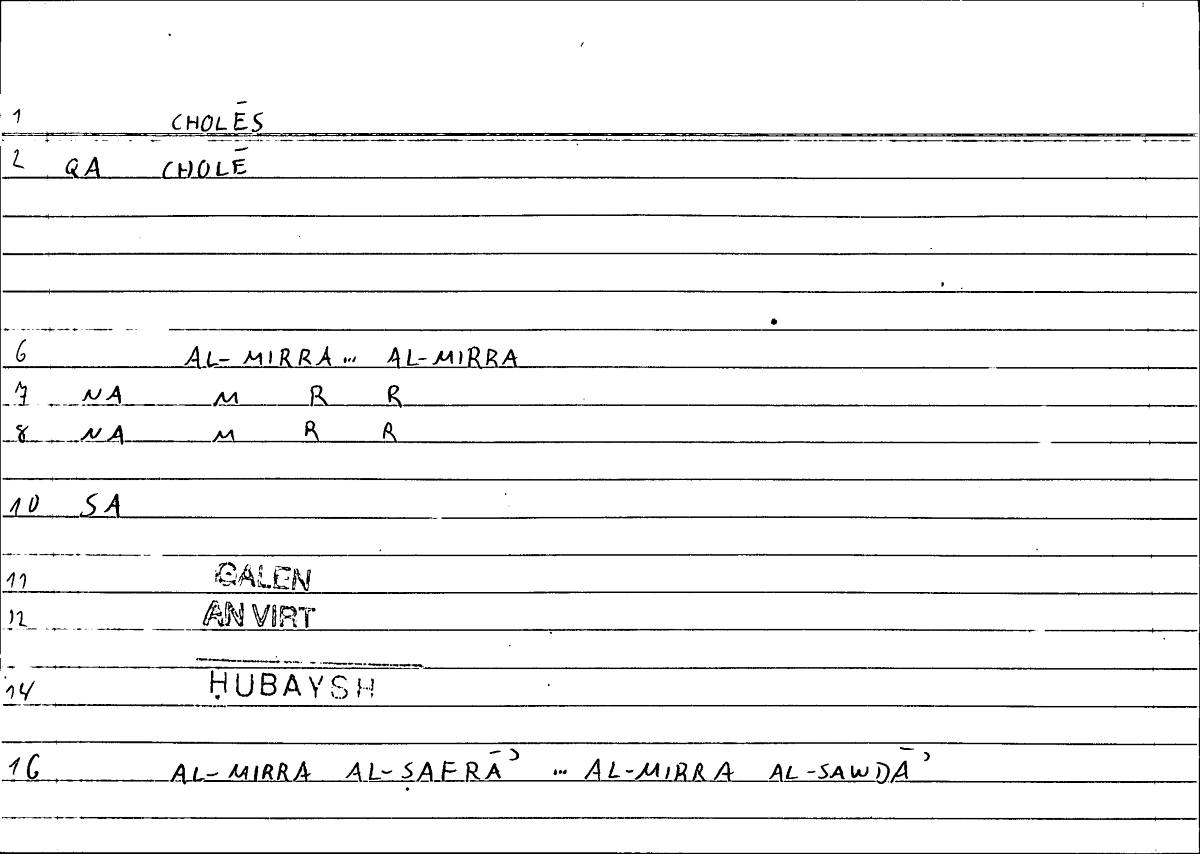 1 CHOLĒS
2 QA CHOLĒ
6 AL-MIRRA... AL-MIRRA
7 NA M R R
8 NA M R R
10 SA
11 GALEN
12 AN VIRT
14 ḤUBAYSH
16 AL-MIRRA AL-ṢAFRĀʾ ... AL-MIRRA AL-SAWDĀʾ